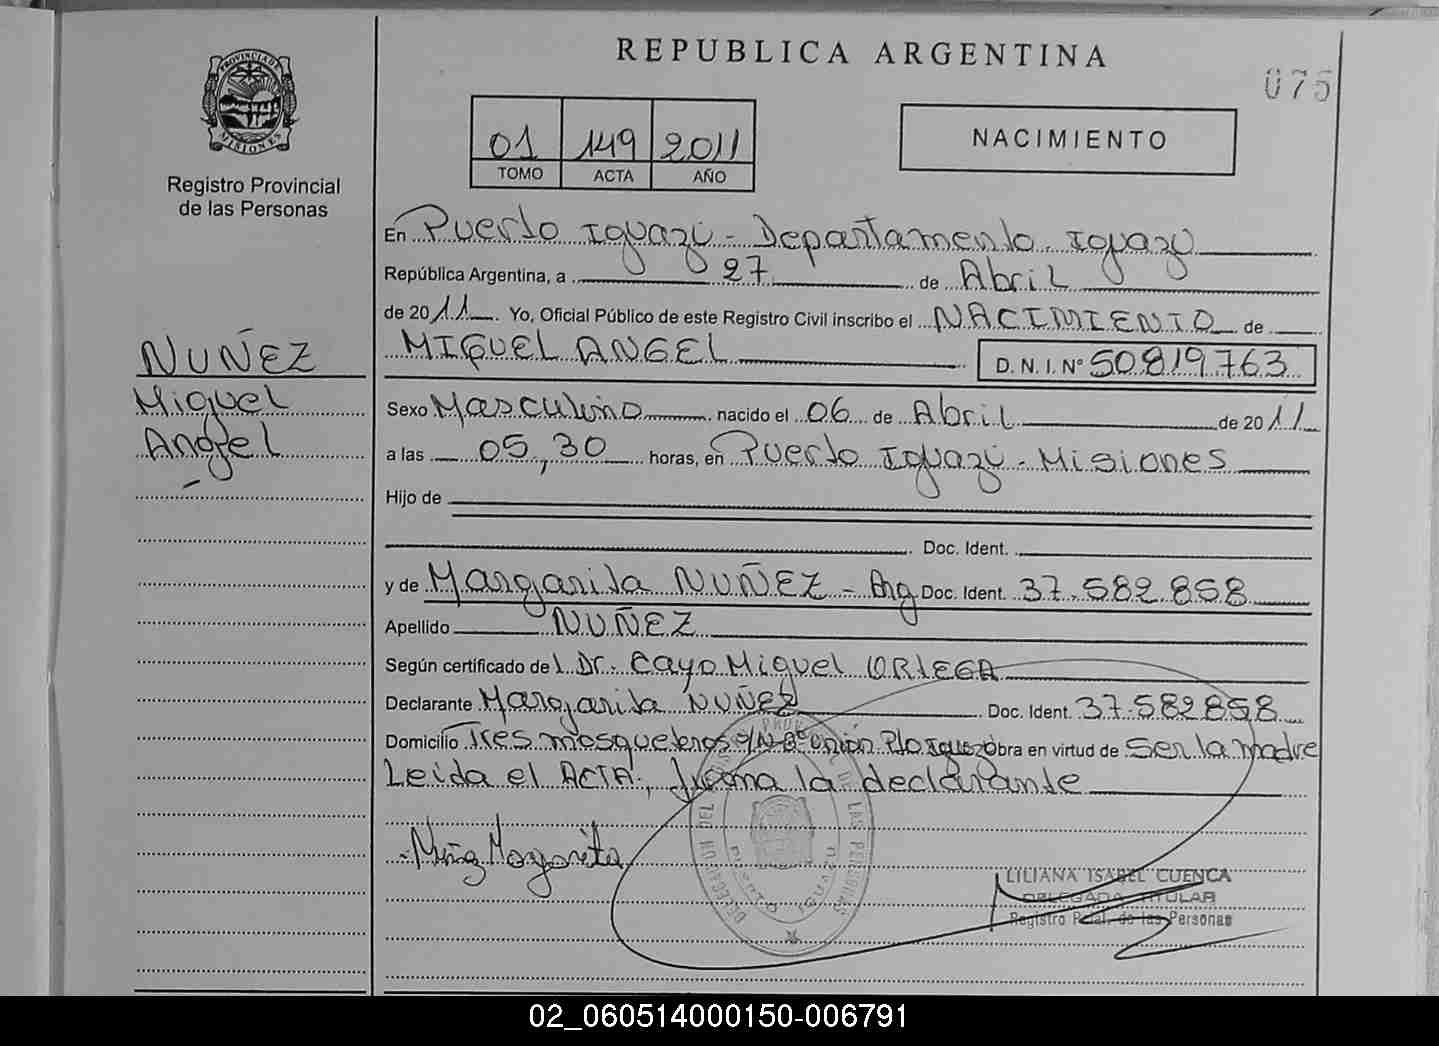 REPUBLICA ARGENTINA
075
PROVINCIA DE MISIONES
Registro Provincial
de las Personas
01 149 2011
TOMO ACTA AÑO
NACIMIENTO
En Puerto Iguazú - Departamento Iguazú
República Argentina, a 27 de Abril
de 2011. Yo, Oficial Público de este Registro Civil inscribo el NACIMIENTO de
MIGUEL ANGEL D.N.I. Nº 50.819.763
NUÑEZ
Miguel
Angel
Sexo Masculino nacido el 06 de Abril de 2011
a las 05,30 horas, en Puerto Iguazú - Misiones
Hijo de
Doc. Ident.
y de Margarita NUÑEZ - Arg Doc. Ident. 37.582.858
Apellido NUÑEZ
Según certificado del Dr. Cayo Miguel ORTEGA
Declarante Margarita NUÑEZ Doc. Ident. 37.582858
Domicilio Tres mosqueteros s/N Bº Unión Pto Iguazú obra en virtud de Ser la madre
Leida el ACTA, firma la declarante
Margarita
LILIANA ISABEL CUENCA
DELEGADA TITULAR
Registro Pcial. de las Personas
02_060514000150-006791